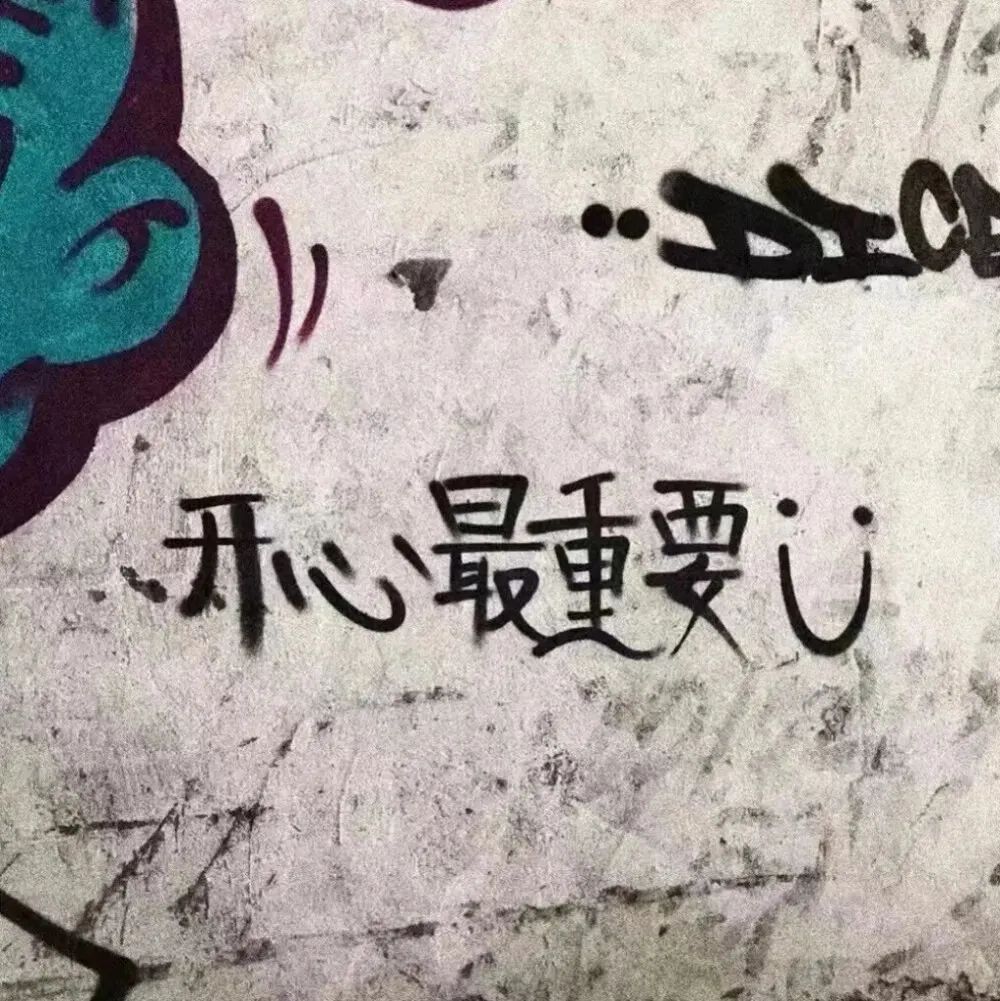 DICE
开心最重要